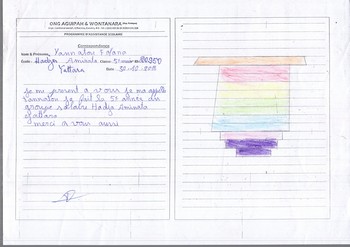 ONG AGUIPAH & WONTANARA
PROGRAMME D'ASSISTANCE SCOLAIRE
Correspondance
Nom & Prénoms: Yannatou Fofana
Ecole: Hadja Aminata Classe: 5e année
Yattara Date: 30-12-
je me present a vous je ma appelle
Yannatou je fait la 5e année du
groupe scolaire Hadja Aminata
yattara
merci a vous aussi